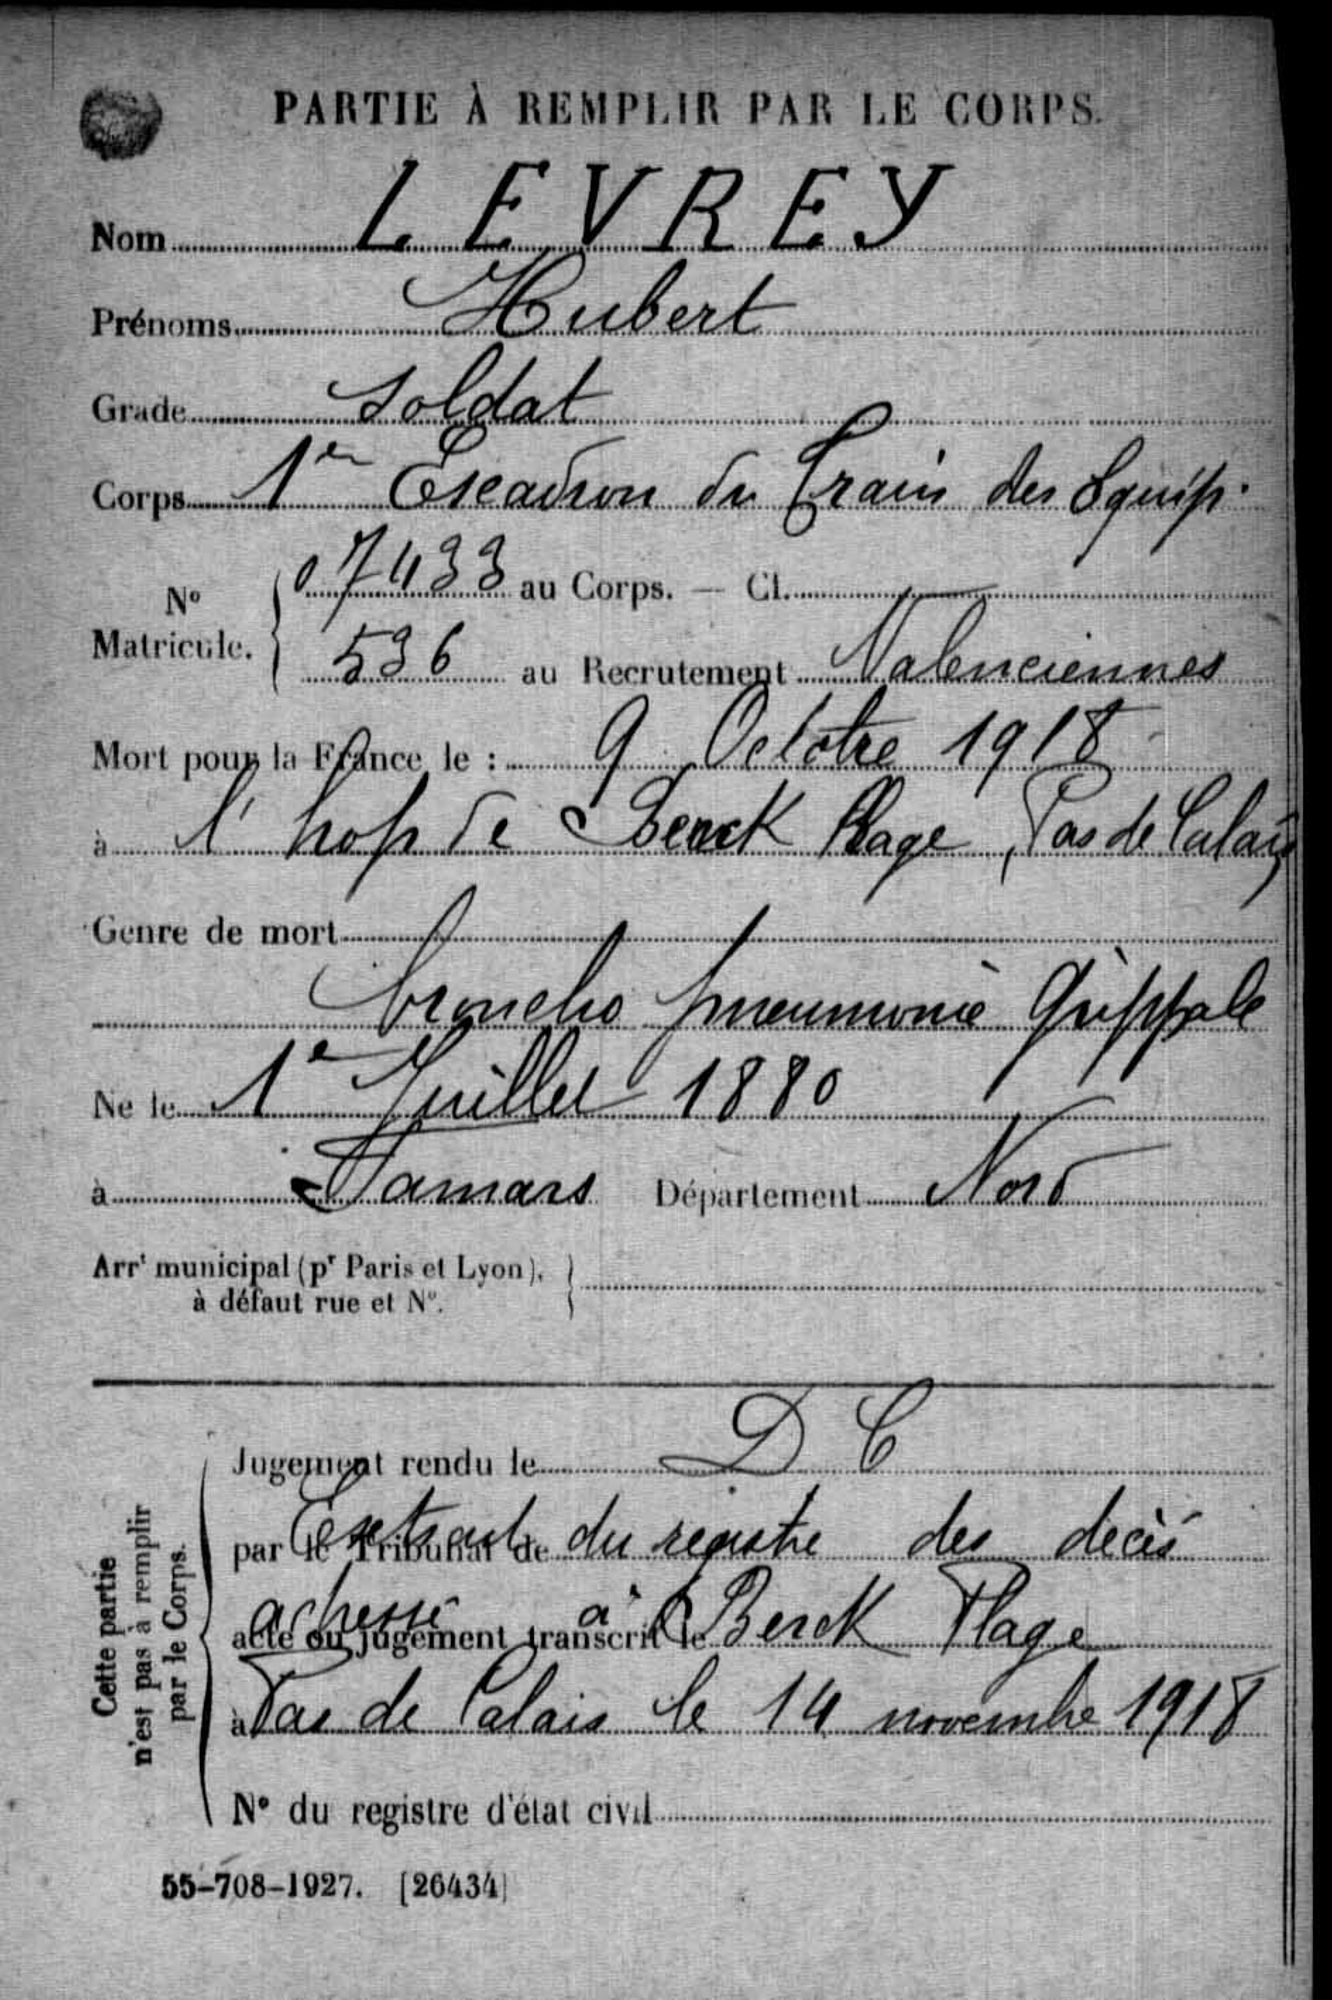 PARTIE À REMPLIR PAR LE CORPS.
Nom LEVREY
Prénoms Hubert
Grade soldat
Corps 1er Escadron du Train des Equip.
N° Matricule. 07433 au Corps. — Cl.
536 au Recrutement Valenciennes
Mort pour la France le : 9 Octobre 1918
à l'hop de Berck Plage, Pas de Calais
Genre de mort
broncho pneumonie Grippale
Né le 1er Juillet 1880
à Famars Département Nord
Arrt municipal (pr Paris et Lyon),
à défaut rue et N°.
Cette partie
n'est pas à remplir
par le Corps.
Jugement rendu le D C
par le Tribunal de Extrait du registre des decès
acte ou jugement transcrit le adressé à Berck Plage
à Pas de Calais le 14 novembre 1918
N° du registre d'état civil
55-708-1927. [26434]